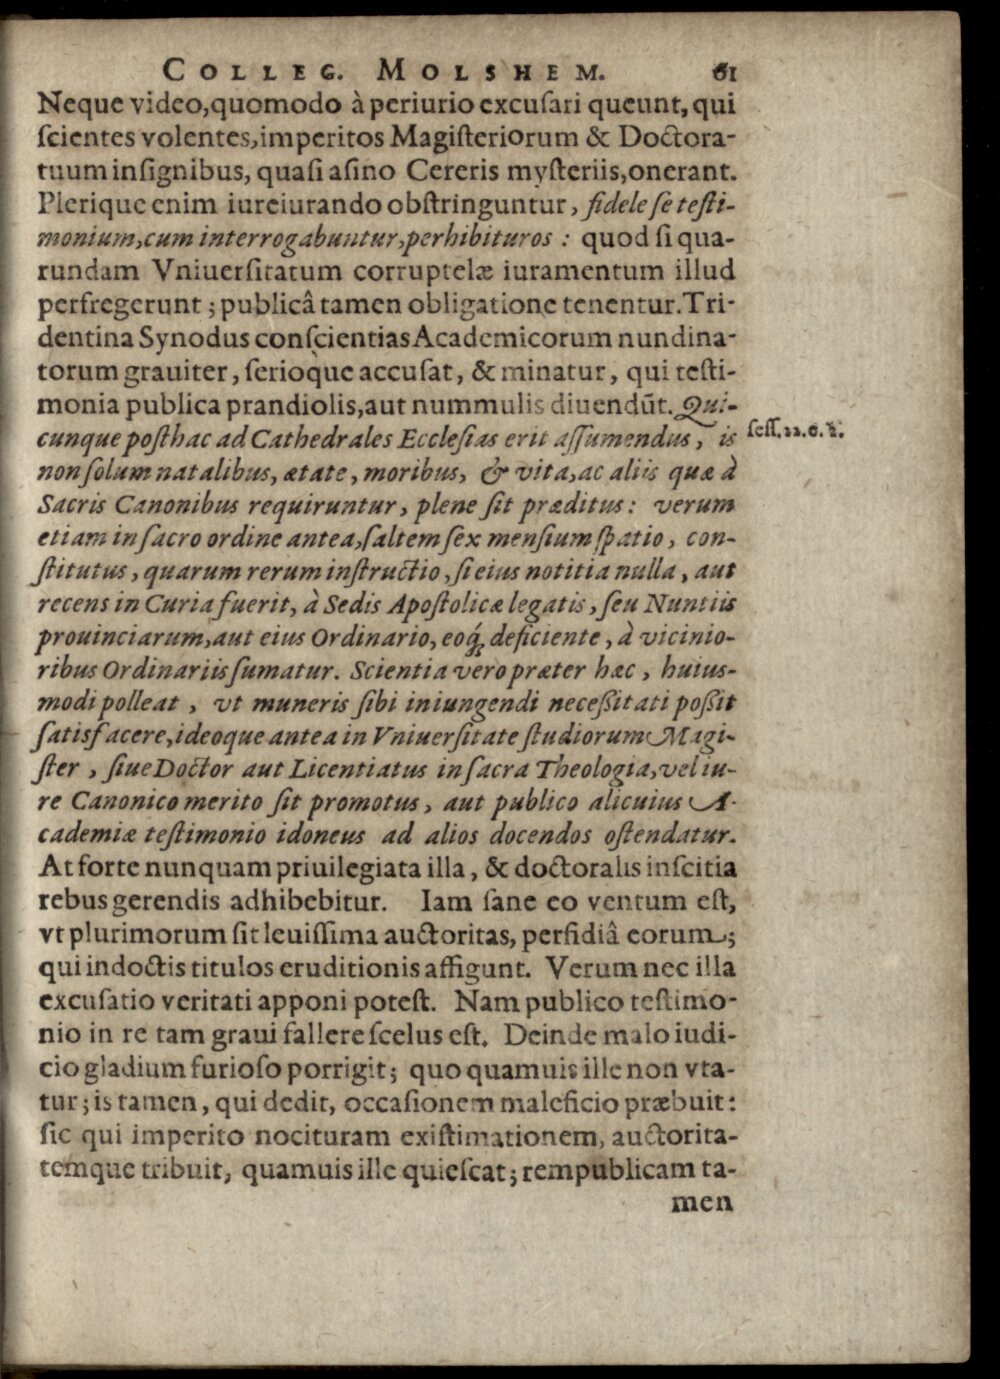 COLLEG. MOLSHEM. 61
Neque video, quomodo à periurio excusari queunt, qui
scientes volentes, imperitos Magisteriorum & Doctora-
tuum insignibus, quasi asino Cereris mysteriis, onerant.
Plerique enim iureiurando obstringuntur, fidele se testi-
monium, cum interrogabuntur, perhibituros : quod si qua-
rundam Vniuersitatum corruptelæ iuramentum illud
perfregerunt ; publicâ tamen obligatione tenentur. Tri-
dentina Synodus conscientias Academicorum nundina-
torum grauiter, serioque accusat, & minatur, qui testi-
monia publica prandiolis, aut nummulis diuendūt. Qui-
cunque posthac ad Cathedrales Ecclesias erit assumendus, is
sess. 22. c. 2.
non solum natalibus, ætate, moribus, & vita, ac aliis quæ à
Sacris Canonibus requiruntur, plene sit præditus : verum
etiam in sacro ordine antea, saltem sex mensium spatio, con-
stitutus, quarum rerum instructio, si eius notitia nulla, aut
recens in Curia fuerit, à Sedis Apostolicæ legatis, seu Nuntiis
prouinciarum, aut eius Ordinario, eoq́; deficiente, à vicinio-
ribus Ordinariis sumatur. Scientia vero præter hæc, huius-
modi polleat, vt muneris sibi iniungendi necessitati possit
satisfacere, ideoque antea in Vniuersitate studiorum Magi-
ster, siue Doctor aut Licentiatus in sacra Theologia, vel iu-
re Canonico merito sit promotus, aut publico alicuius A-
cademiæ testimonio idoneus ad alios docendos ostendatur.
At forte nunquam priuilegiata illa, & doctoralis inscitia
rebus gerendis adhibebitur. Iam sane eo ventum est,
vt plurimorum sit leuissima auctoritas, perfidiâ eorum ;
qui indoctis titulos eruditionis affigunt. Verum nec illa
excusatio veritati apponi potest. Nam publico testimo-
nio in re tam graui fallere scelus est. Deinde malo iudi-
cio gladium furioso porrigit ; quo quamuis ille non vta-
tur ; is tamen, qui dedit, occasionem maleficio præbuit :
sic qui imperito nocituram existimationem, auctorita-
temque tribuit, quamuis ille quiescat ; rempublicam ta-
men